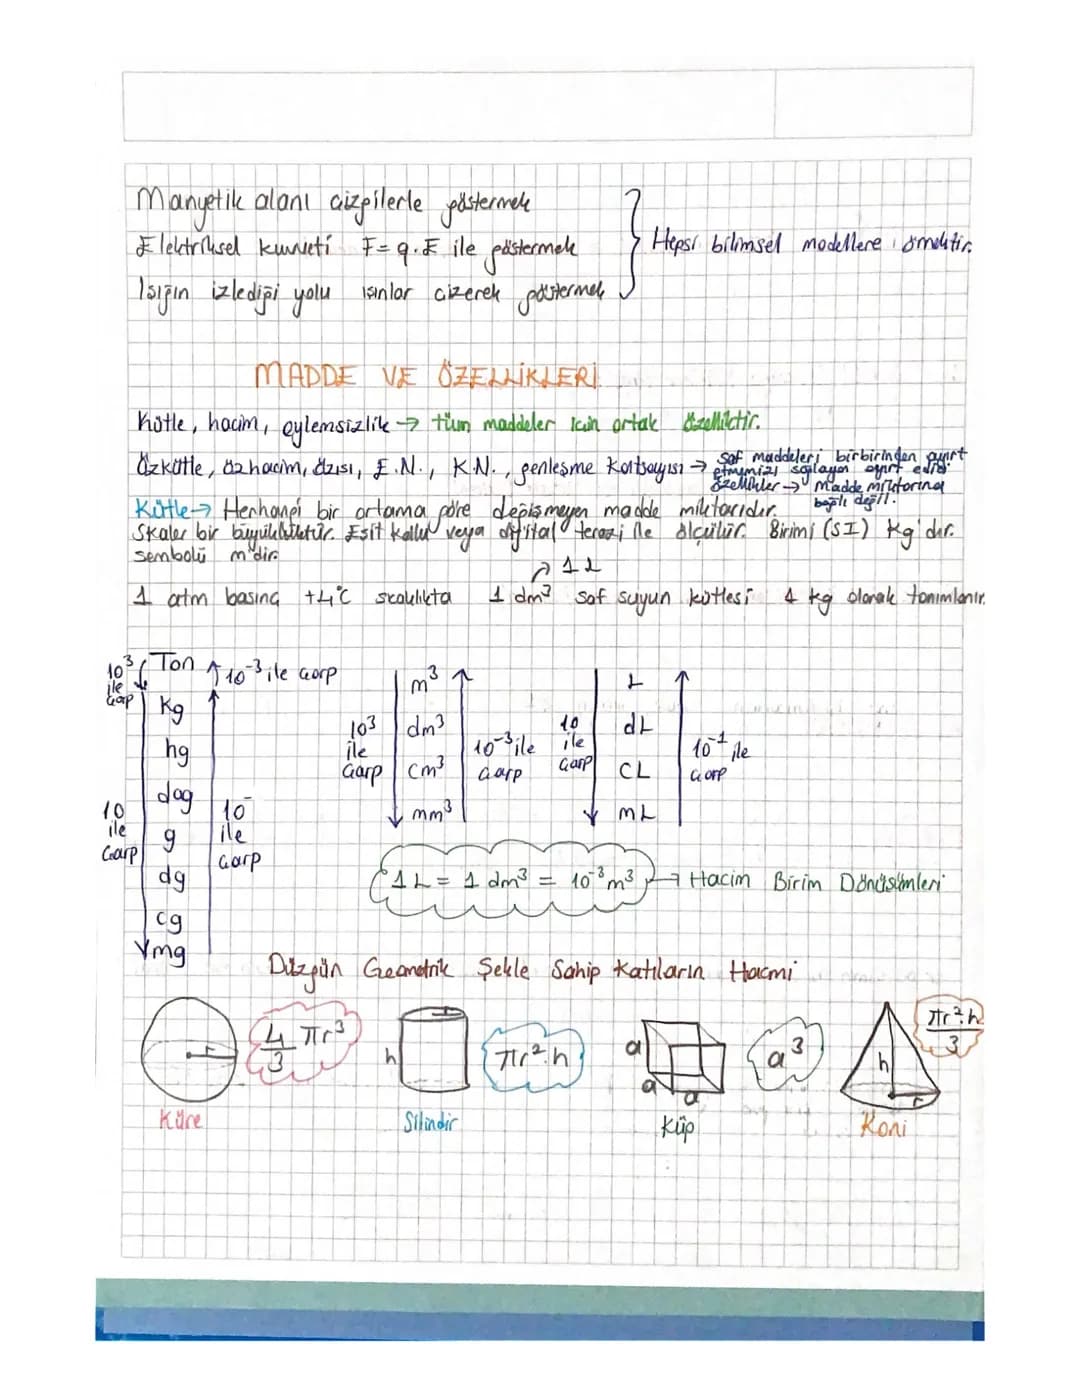 Manyetik alanı çizgilerle göstermek
Elektriksel kuvveti F = q.E ile göstermek
Işığın izlediği yolu ışınlar çizerek göstermek
Hepsi bilimsel modellere örnektir.
MADDE VE ÖZELLİKLERİ
Kütle, hacim, eylemsizlik → tüm maddeler için ortak özelliktir.
Özkütle, özhacim, özısı, E.N., K.N., genleşme katsayısı → saf maddeleri birbirinden ayırt
etmemizi sağlayan ayırt edici
özellikler → Madde miktarına
bağlı değil!
Kütle → Herhangi bir ortama göre değişmeyen madde miktarıdır.
Skaler bir büyüklüktür. Eşit kollu veya dijital terazi ile ölçülür. Birimi (SI) kg'dır.
sembolü m'dir
↗ 1L
1 atm basınç +4°C sıcaklıkta 1 dm³ saf suyun kütlesi 1 kg olarak tanımlanır.
10³ ile çarp
Ton
kg
hg
dag
g
dg
cg
mg
10⁻³ ile çarp
10 ile çarp
10⁻ ile çarp
10³ ile çarp
m³
dm³
cm³
mm³
10⁻³ ile çarp
10 ile çarp
L
dL
cL
mL
10⁻¹ ile çarp
1L = 1 dm³ = 10⁻³ m³ → Hacim Birim Dönüşümleri
Düzgün Geometrik Şekle Sahip Katıların Hacmi
r
4/3 πr³
Küre
r
h
πr².h
Silindir
a
a
a
a³
Küp
h
r
πr².h/3
Koni